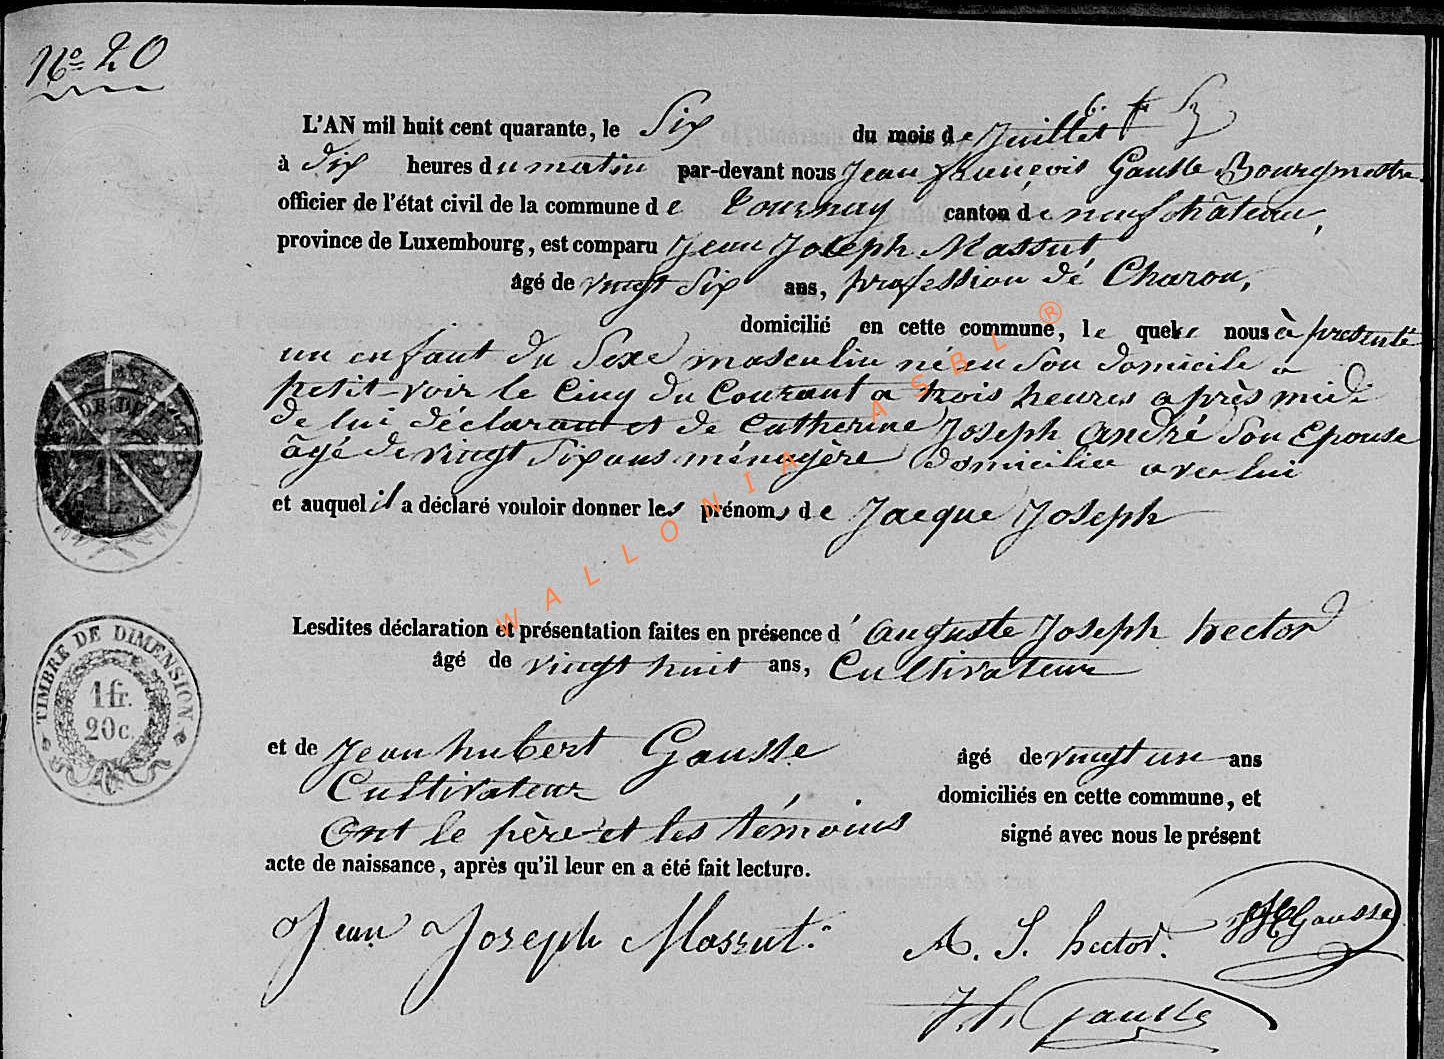 No 20
L'AN mil huit cent quarante, le Six du mois de Juillet
à dix heures du matin par-devant nous Jean françois Gausse Bourgmestre
officier de l'état civil de la commune de Tournay canton de neufchâteau,
province de Luxembourg, est comparu Jean Joseph Massut
âgé de vingt Six ans, profession de Charon,
domicilié en cette commune, le quel nous à presenté
un enfant du Sexe masculin né en Son domicile a
petit-voir le Cinq du Courant a trois heures après midi
de lui déclarant et de Catherine Joseph André Son Epouse
âgé de vingt Six ans ménagère domicilié avec lui
et auquel il a déclaré vouloir donner les prénoms de Jacque Joseph
Lesdites déclaration et présentation faites en présence d' Auguste Joseph hector
âgé de vingt huit ans, Cultivateur
et de Jean hubert Gausse âgé de vingt un ans
Cultivateur domiciliés en cette commune, et
Ont le père et les témoins signé avec nous le présent
acte de naissance, après qu'il leur en a été fait lecture.
Jean Joseph Massut. A. J. hector. Gausse
J. h. Gausse
TIMBRE DE DIMENSION.
1 fr.
20 c.
WALLONIA ASBL ®